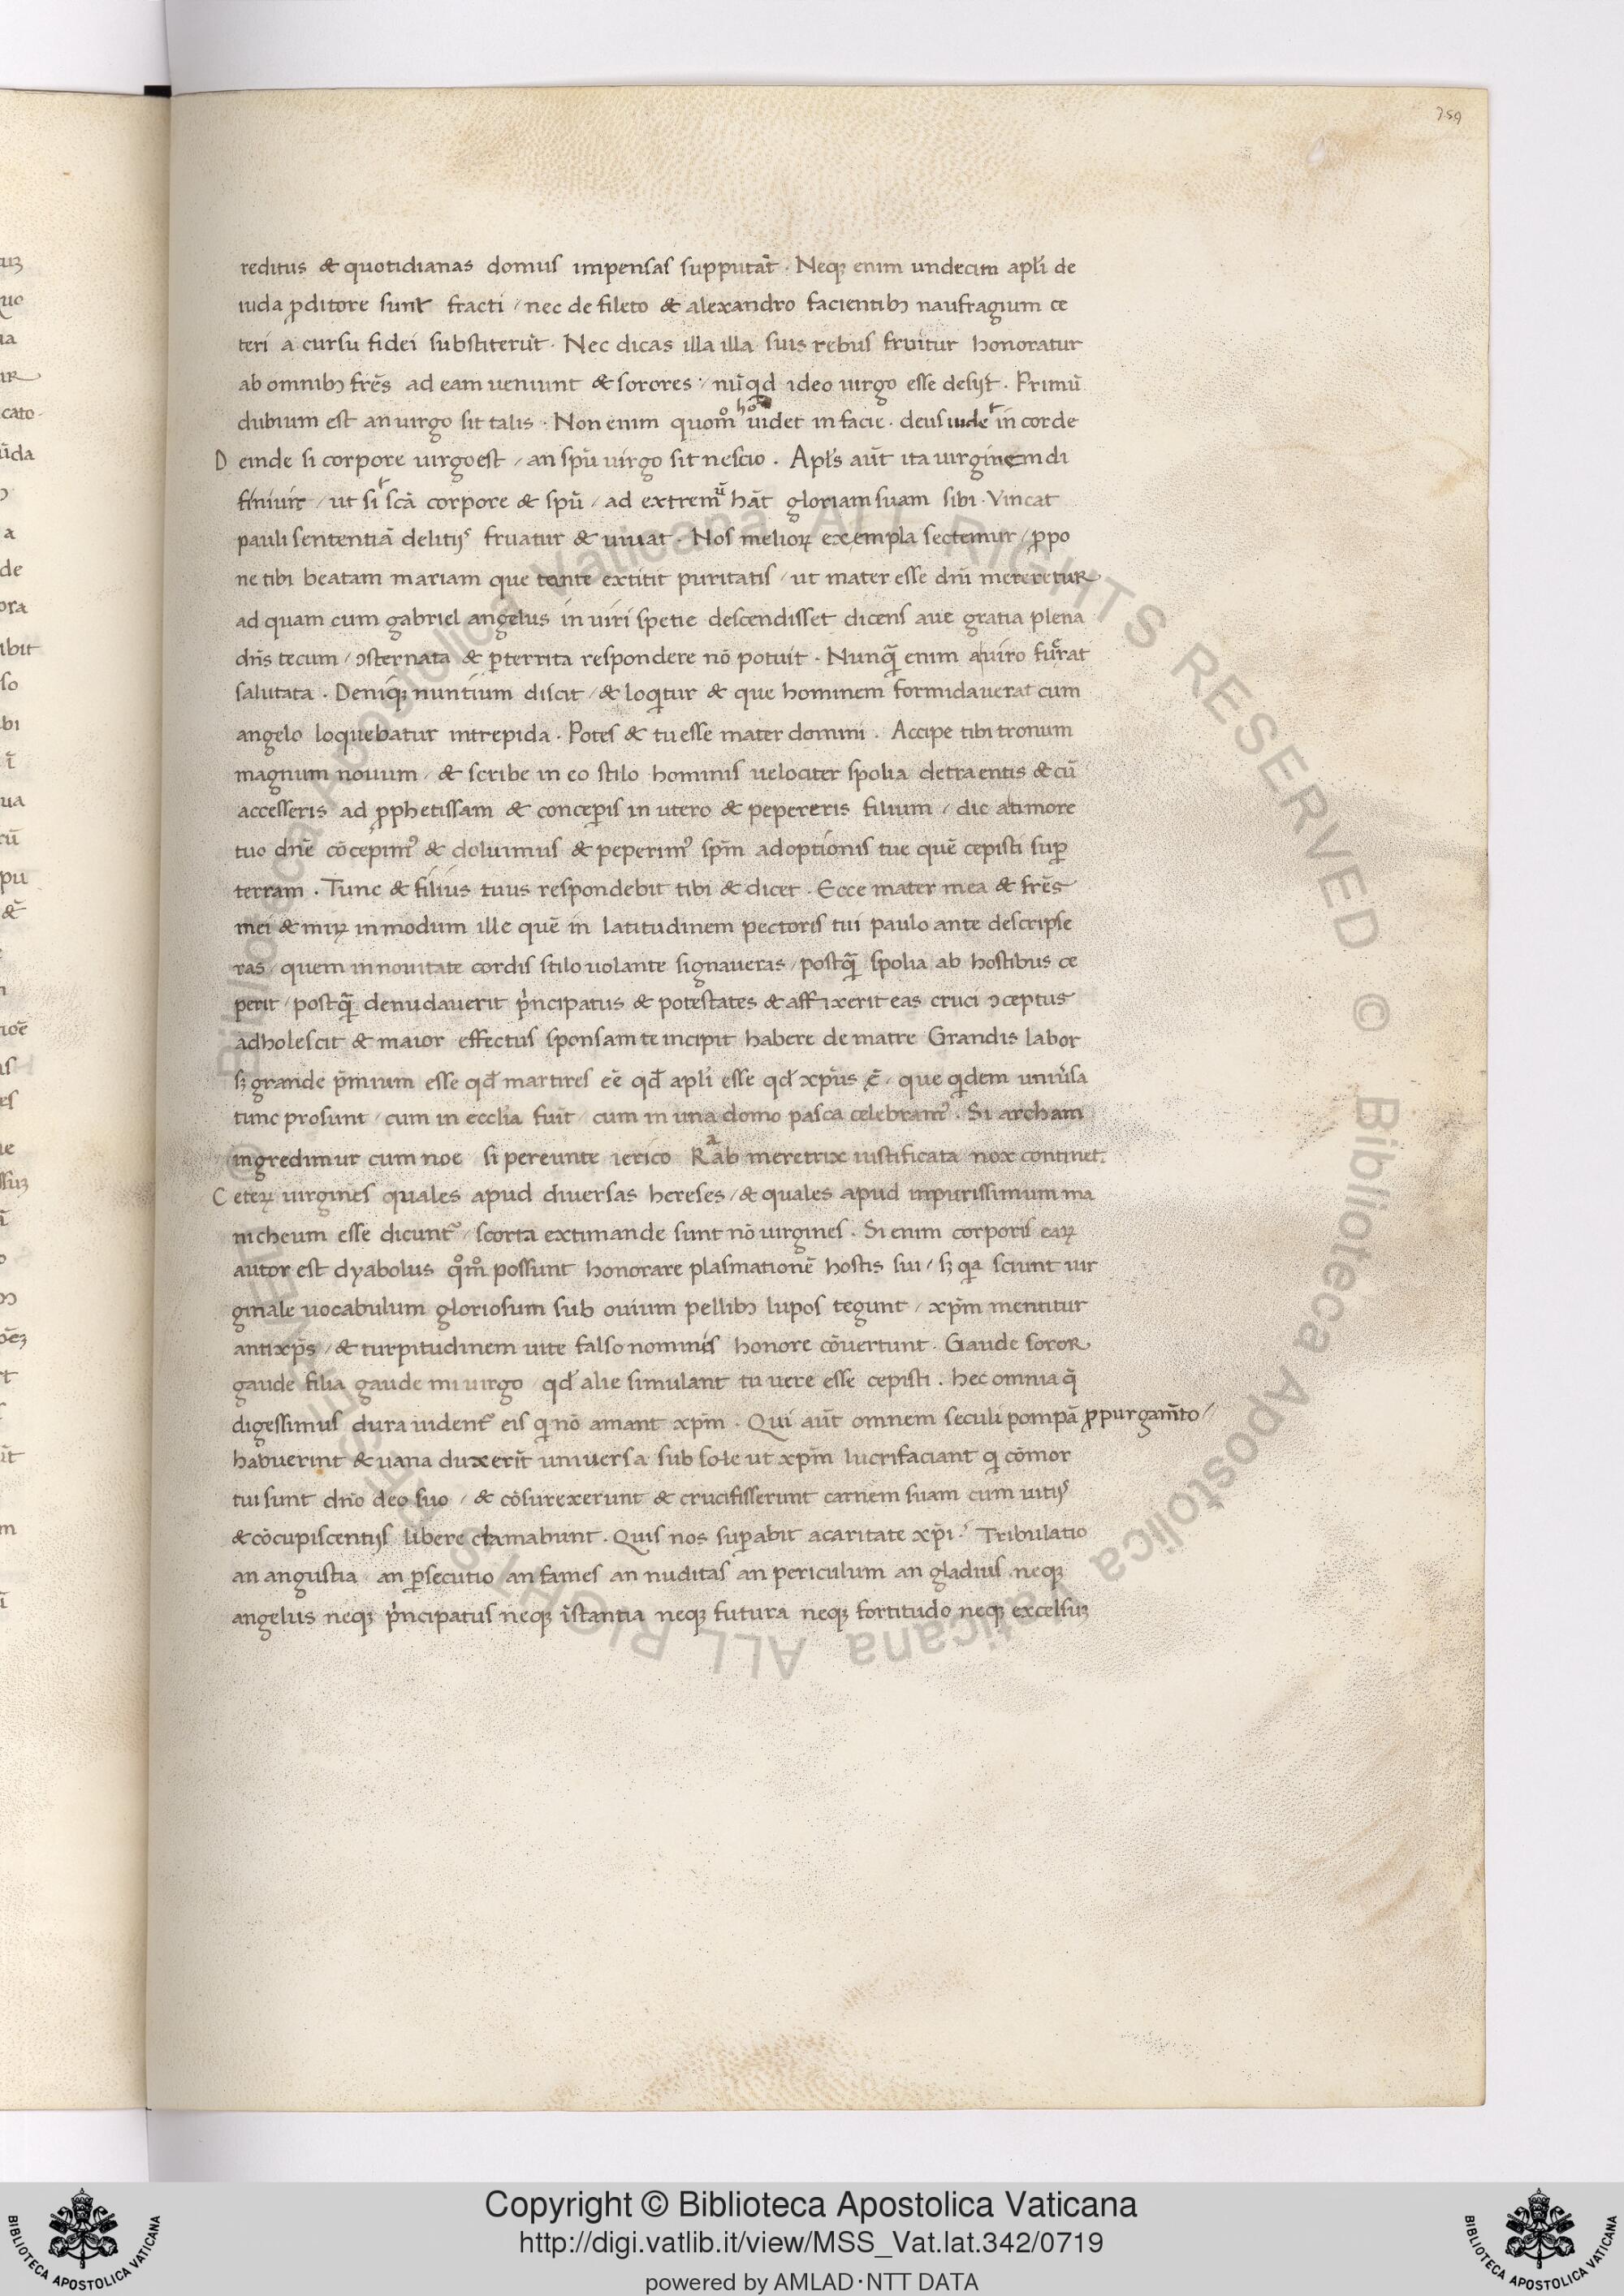 359
reditus & quotidianas domus impensas supputāt · Neq; enim undecim apl̄i de
iuda ꝓditore sunt fracti / nec de fileto & alexandro facientibꝫ naufragium ce
teri a cursu fidei substiterūt · Nec dicas illa illa suis rebus fruitur honoratur
ab omnibꝫ fr̄es ad eam ueniunt & sorores · nūqd ideo uirgo esse desijt · Primū
dubium est an uirgo sit talis · Non enim quom̊ hō uidet in facie · deus uidet in corde
D einde si corpore uirgo est / an spū uirgo sit nescio · Apl̄s aūt ita uirginem di
finiuit / ut sit sc̄a corpore & spū / ad extremū hāt gloriam suam sibi · Vincat
pauli sententiā delitijs fruatur & uiuat · Nos melioꝝ exempla sectemur / ꝓpo
ne tibi beatam mariam que tante extitit puritatis / ut mater esse dn̄i mereretur
ad quam cum gabriel angelus in uiri spetie descendisset dicens aue gratia plena
dn̄s tecum / ꝯsternata & ꝑterrita respondere nō potuit · Nunqꝫ̄ enim a uiro fūerat
salutata · Deniqꝫ nuntium discit / & loqitur & que hominem formidauerat cum
angelo loquebatur intrepida · Potes & tu esse mater domini · Accipe tibi tronum
magnum nouum / & scribe in eo stilo hominis uelociter spolia detraentis & cū
accesseris ad ꝓphetissam & conceꝑis in utero & pepereris filium / dic a timore
tuo dn̄e cōcepimꝰ & doluimus & peperimꝰ spm̄ adoptionis tue quē cepisti suꝑ
terram · Tunc & filius tuus respondebit tibi & dicet · Ecce mater mea & fr̄es
mei & miꝝ in modum ille quē in latitudinem pectoris tui paulo ante descripse
ras / quem in nouitate cordis stilo uolante signaueras / postq̄ spolia ab hostibus ce
perit / postq̄ denudauerit pⁱncipatus & potestates & affixerit eas cruci ꝯceptus
adholescit & maior effectus sponsam te incipit habere de matre Grandis labor
sꝫ grande p̄mium esse qd̄ martires eē qd̄ apl̄i esse qd̄ xp̄us ē / que qidem uniūsa
tunc prosunt / cum in eccl̄ia fuīt / cum in una domo pasca celebramꝰ · Si archam
ingredimur cum noe si pereunte ierico Raab meretrix iustificata nox continet ·
C eteꝝ uirgines quales apud diuersas hereses / & quales apud inpurissimum ma
nicheum esse dicuntᷣ / scorta extimande sunt nō uirgines · Si enim corporis eaꝝ
autor est dyabolus qom̊ possunt honorare plasmationē hostis sui / sꝫ qa sciunt uir
ginale uocabulum gloriosum sub ouium pellibꝫ lupos tegunt / xp̄m mentitur
antixp̄s / & turpitudinem uite falso nominis honore cōuertunt · Gaude soror
gaude filia gaude mi uirgo / qd̄ alie simulant tu uere esse cepisti · hec omnia q̄
digessimus dura uidentᷣ eis qi nō amant xp̄m · Qui aūt omnem seculi pompā ꝓ purgam̄to /
habuerint & uana duxerīt uniuersa sub sole ut xp̄m lucrifaciant qi cōmor
tui sunt dn̄o deo suo / & cōsurexerunt & crucifisserunt carnem suam cum uitijs
& cōcupiscentijs libere clamabunt · Quis nos suꝑabit a caritate xp̄i ? Tribulatio
an angustia / an ꝑsecutio an fames an nuditas an periculum an gladius · neqꝫ
angelus neqꝫ pⁱncipatus neqꝫ īstantia neqꝫ futura neqꝫ fortitudo neqꝫ excelsuꝫ
Copyright © Biblioteca Apostolica Vaticana
http://digi.vatlib.it/view/MSS_Vat.lat.342/0719
powered by AMLAD·NTT DATA